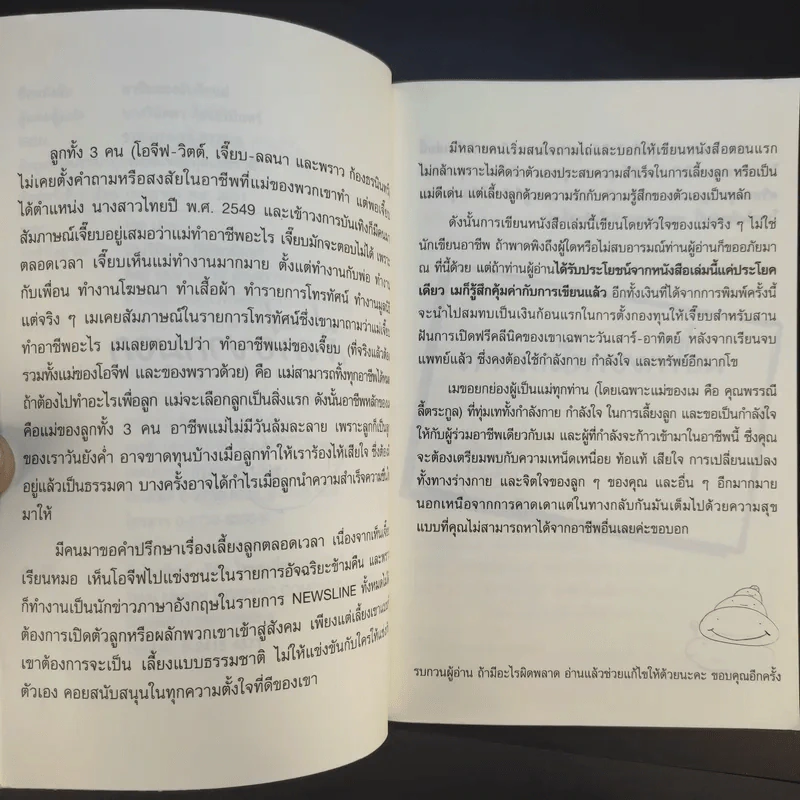 ลูกทั้ง 3 คน (โอจีฟ-วิตต์, เจี๊ยบ-ลลนา และพราว ก้องธรนินทร์)
ไม่เคยตั้งคำถามหรือสงสัยในอาชีพที่แม่ของพวกเขาทำ แต่พอเจี๊ยบ
ได้ตำแหน่ง นางสาวไทยปี พ.ศ. 2549 และเข้าวงการบันเทิงก็มีคน
สัมภาษณ์เจี๊ยบอยู่เสมอว่าแม่ทำอาชีพอะไร เจี๊ยบมักจะตอบไม่ได้ เพราะ
ตลอดเวลา เจี๊ยบเห็นแม่ทำงานมากมาย ตั้งแต่ทำงานกับพ่อ ทำงาน
กับเพื่อน ทำงานโฆษณา ทำเสื้อผ้า ทำรายการโทรทัศน์ ทำงานมูลนิธิ
แต่จริง ๆ เมเคยสัมภาษณ์ในรายการโทรทัศน์ซึ่งเขามาถามว่าแม่เจี๊ยบ
ทำอาชีพอะไร เมเลยตอบไปว่า ทำอาชีพแม่ของเจี๊ยบ (ที่จริงแล้วต้อง
รวมทั้งแม่ของโอจีฟ และของพราวด้วย) คือ แม่สามารถทิ้งทุกอาชีพได้หมด
ถ้าต้องไปทำอะไรเพื่อลูก แม่จะเลือกลูกเป็นสิ่งแรก ดังนั้นอาชีพหลักของเม
คือแม่ของลูกทั้ง 3 คน อาชีพแม่ไม่มีวันล้มละลาย เพราะลูกก็เป็นลูก
ของเราวันยังค่ำ อาจขาดทุนบ้างเมื่อลูกทำให้เราร้องไห้เสียใจ ซึ่งต้องมี
อยู่แล้วเป็นธรรมดา บางครั้งอาจได้กำไรเมื่อลูกนำความสำเร็จความชื่นใจ
มาให้
มีคนมาขอคำปรึกษาเรื่องเลี้ยงลูกตลอดเวลา เนื่องจากเห็นเจี๊ยบ
เรียนหมอ เห็นโอจีฟไปแข่งชนะในรายการอัจฉริยะข้ามคืน และพราว
ก็ทำงานเป็นนักข่าวภาษาอังกฤษในรายการ NEWSLINE ทั้งหมดไม่ได้
ต้องการเปิดตัวลูกหรือผลักพวกเขาเข้าสู่สังคม เพียงแต่เลี้ยงเขาแบบที่
เขาต้องการจะเป็น เลี้ยงแบบธรรมชาติ ไม่ให้แข่งขันกับใครให้แข่งกับ
ตัวเอง คอยสนับสนุนในทุกความตั้งใจที่ดีของเขา
มีหลายคนเริ่มสนใจถามไถ่และบอกให้เขียนหนังสือตอนแรก
ไม่กล้าเพราะไม่คิดว่าตัวเองประสบความสำเร็จในการเลี้ยงลูก หรือเป็น
แม่ดีเด่น แต่เลี้ยงลูกด้วยความรักกับความรู้สึกของตัวเองเป็นหลัก
ดังนั้นการเขียนหนังสือเล่มนี้เขียนโดยหัวใจของแม่จริง ๆ ไม่ใช่
นักเขียนอาชีพ ถ้าพาดพิงถึงผู้ใดหรือไม่สบอารมณ์ท่านผู้อ่านก็ขออภัยมา
ณ ที่นี้ด้วย แต่ถ้าท่านผู้อ่านได้รับประโยชน์จากหนังสือเล่มนี้แค่ประโยค
เดียว เมก็รู้สึกคุ้มค่ากับการเขียนแล้ว อีกทั้งเงินที่ได้จากการพิมพ์ครั้งนี้
จะนำไปสมทบเป็นเงินก้อนแรกในการตั้งกองทุนให้เจี๊ยบสำหรับสาน
ฝันการเปิดฟรีคลีนิคของเขาเฉพาะวันเสาร์-อาทิตย์ หลังจากเรียนจบ
แพทย์แล้ว ซึ่งคงต้องใช้กำลังกาย กำลังใจ และทรัพย์อีกมากโข
เมขอยกย่องผู้เป็นแม่ทุกท่าน (โดยเฉพาะแม่ของเม คือ คุณพรรณี
ลี้ตระกูล) ที่ทุ่มเททั้งกำลังกาย กำลังใจ ในการเลี้ยงลูก และขอเป็นกำลังใจ
ให้กับผู้ร่วมอาชีพเดียวกับเม และผู้ที่กำลังจะก้าวเข้ามาในอาชีพนี้ ซึ่งคุณ
จะต้องเตรียมพบกับความเหน็ดเหนื่อย ท้อแท้ เสียใจ การเปลี่ยนแปลง
ทั้งทางร่างกาย และจิตใจของลูก ๆ ของคุณ และอื่น ๆ อีกมากมาย
นอกเหนือจากการคาดเดาแต่ในทางกลับกันมันเต็มไปด้วยความสุข
แบบที่คุณไม่สามารถหาได้จากอาชีพอื่นเลยค่ะขอบอก
รบกวนผู้อ่าน ถ้ามีอะไรผิดพลาด อ่านแล้วช่วยแก้ไขให้ด้วยนะคะ ขอบคุณอีกครั้ง